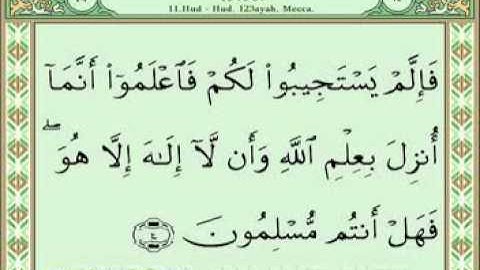 11.Hud - Hud. 123ayah. Mecca.
فَإِلَّمْ يَسْتَجِيبُوا۟ لَكُمْ فَٱعْلَمُوٓا۟ أَنَّمَآ
أُنزِلَ بِعِلْمِ ٱللَّهِ وَأَن لَّآ إِلَـٰهَ إِلَّا هُوَ ۖ
فَهَلْ أَنتُم مُّسْلِمُونَ